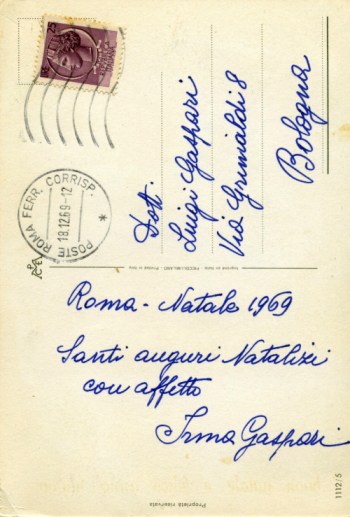 POSTE ROMA FERR. CORRISP.
18.12.69-12
*
Dott.
Luigi Gaspari
Via Grimaldi 8
Bologna
Roma - Natale 1969
Santi auguri Natalizi
con affetto
Irma Gaspari
Proprietà riservata
1112/5